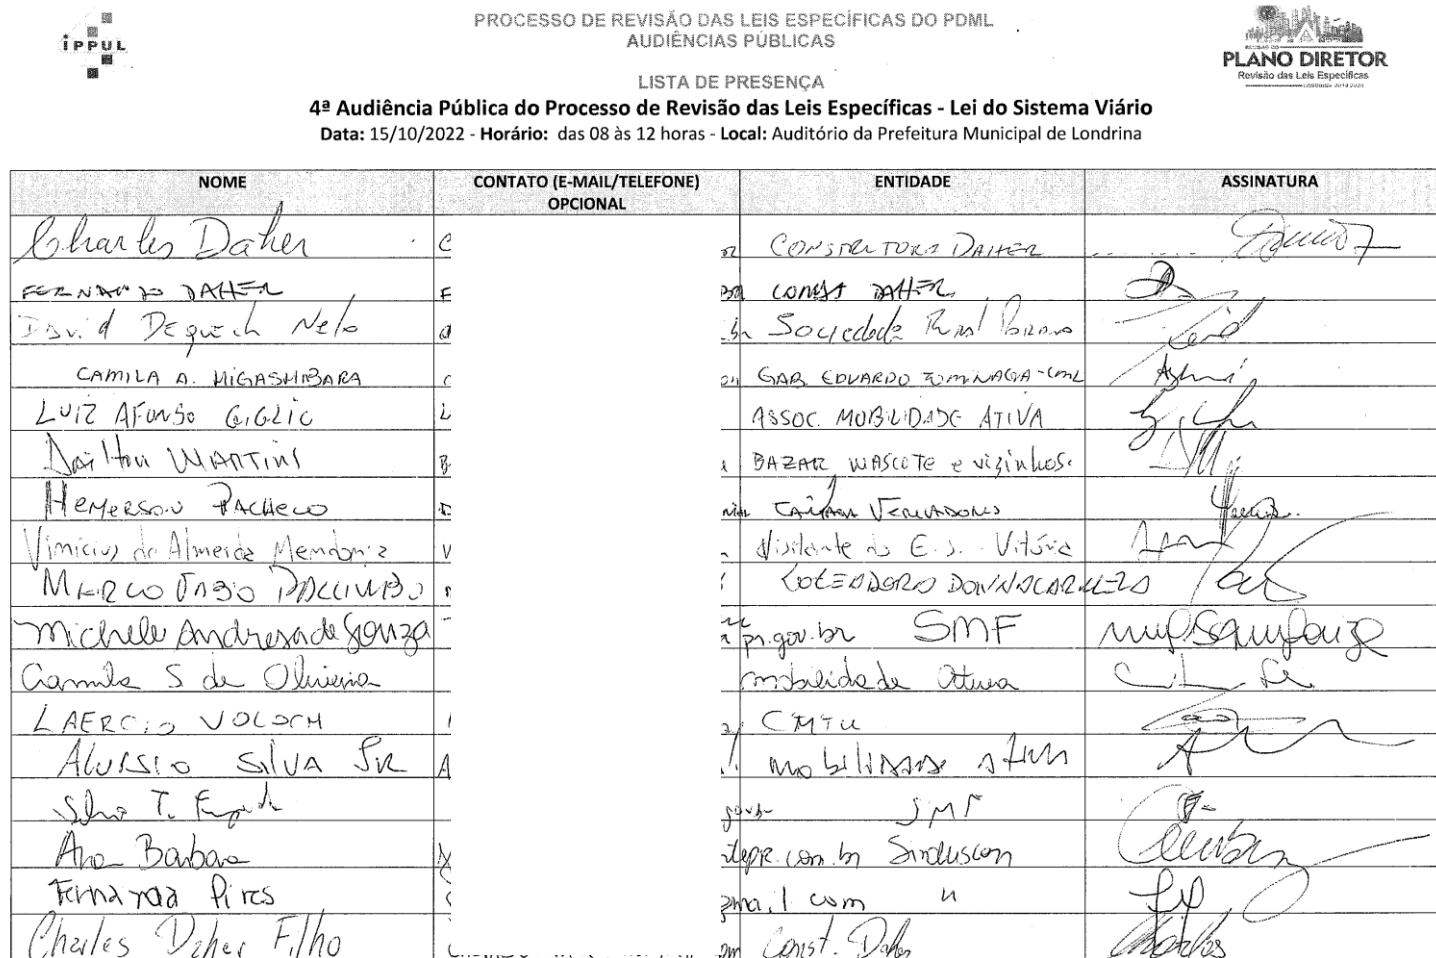 IPPUL
PROCESSO DE REVISÃO DAS LEIS ESPECÍFICAS DO PDML
AUDIÊNCIAS PÚBLICAS
PLANO DIRETOR
Revisão das Leis Específicas
LISTA DE PRESENÇA
4ª Audiência Pública do Processo de Revisão das Leis Específicas - Lei do Sistema Viário
Data: 15/10/2022 - Horário: das 08 às 12 horas - Local: Auditório da Prefeitura Municipal de Londrina
NOME CONTATO (E-MAIL/TELEFONE) OPCIONAL ENTIDADE ASSINATURA
Charles Daher CONSTRUTORA DAHER
FERNANDO DAHER CONST DAHER
David Dequech Neto Sociedade Rural Parana
CAMILA A. HIGASHIBARA GAB. EDUARDO TOMINAGA-CML
LUIZ AFONSO GIGLIO ASSOC. MOBILIDADE ATIVA
Dailton MARTINS BAZAR MASCOTE e vizinhos.
HEMERSON PACHECO CÂMARA VEREADORES
Vinicius de Almeida Visitante do E.S. Vitória
MARCO FABIO
Michele Andresa de Souza pr.gov.br SMF
Camila S de Oliveira mobilidade Ativa
LAERCIO VOLOCH CMTU
ALUISIO SILVA JR mobilidade ativa
T. gov.br SMF
Ana Barbara .com.br Sinduscon
Fernanda Pires gmail com "
Charles Daher Filho Const. Daher